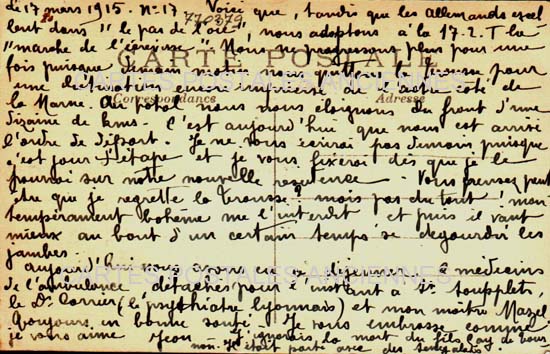 Le 17 mars 1915. N° 17 Voici
que, tandis que les allemands excel
770379
lent dans "le pas de l'oie", nous adoptons à la 17.2. T la
"marche de l'écrevisse". Nous ne progressons plus pour une
fois puisque demain matin nous quittons la brousse pour
une destination encore imprécise de l'autre côté de
la Marne. Au total nous nous éloignons du front d'une
dizaine de kms. C'est aujourd'hui que nous est arrivé
l'ordre de départ. Je ne vous écrirai pas demain puisque
c'est jour d'étape et je vous fixerai dès que je le
pourrai sur notre nouvelle résidence. Vous pensez peut
être que je regrette la brousse? mais pas du tout! mon
tempérament bohème me l'interdit et puis il vaut
mieux au bout d'un certain temps se dégourdir les
jambes
aujourd'hui nous avons eu à déjeuner 2 médecins
de l'ambulance détachés pour l'instant à
le Dr Carrier (le psychiatre lyonnais) et mon maître Mazel
Toujours en bonne santé. Je vous embrasse comme
je vous aime Jean
J'ignorais la mort du fils de
non. Il était parti avec des
CARTE POSTALE
Correspondance
Adresse
CARTES POSTALES ANCIENNES
CARTES POSTALES ANCIENNES